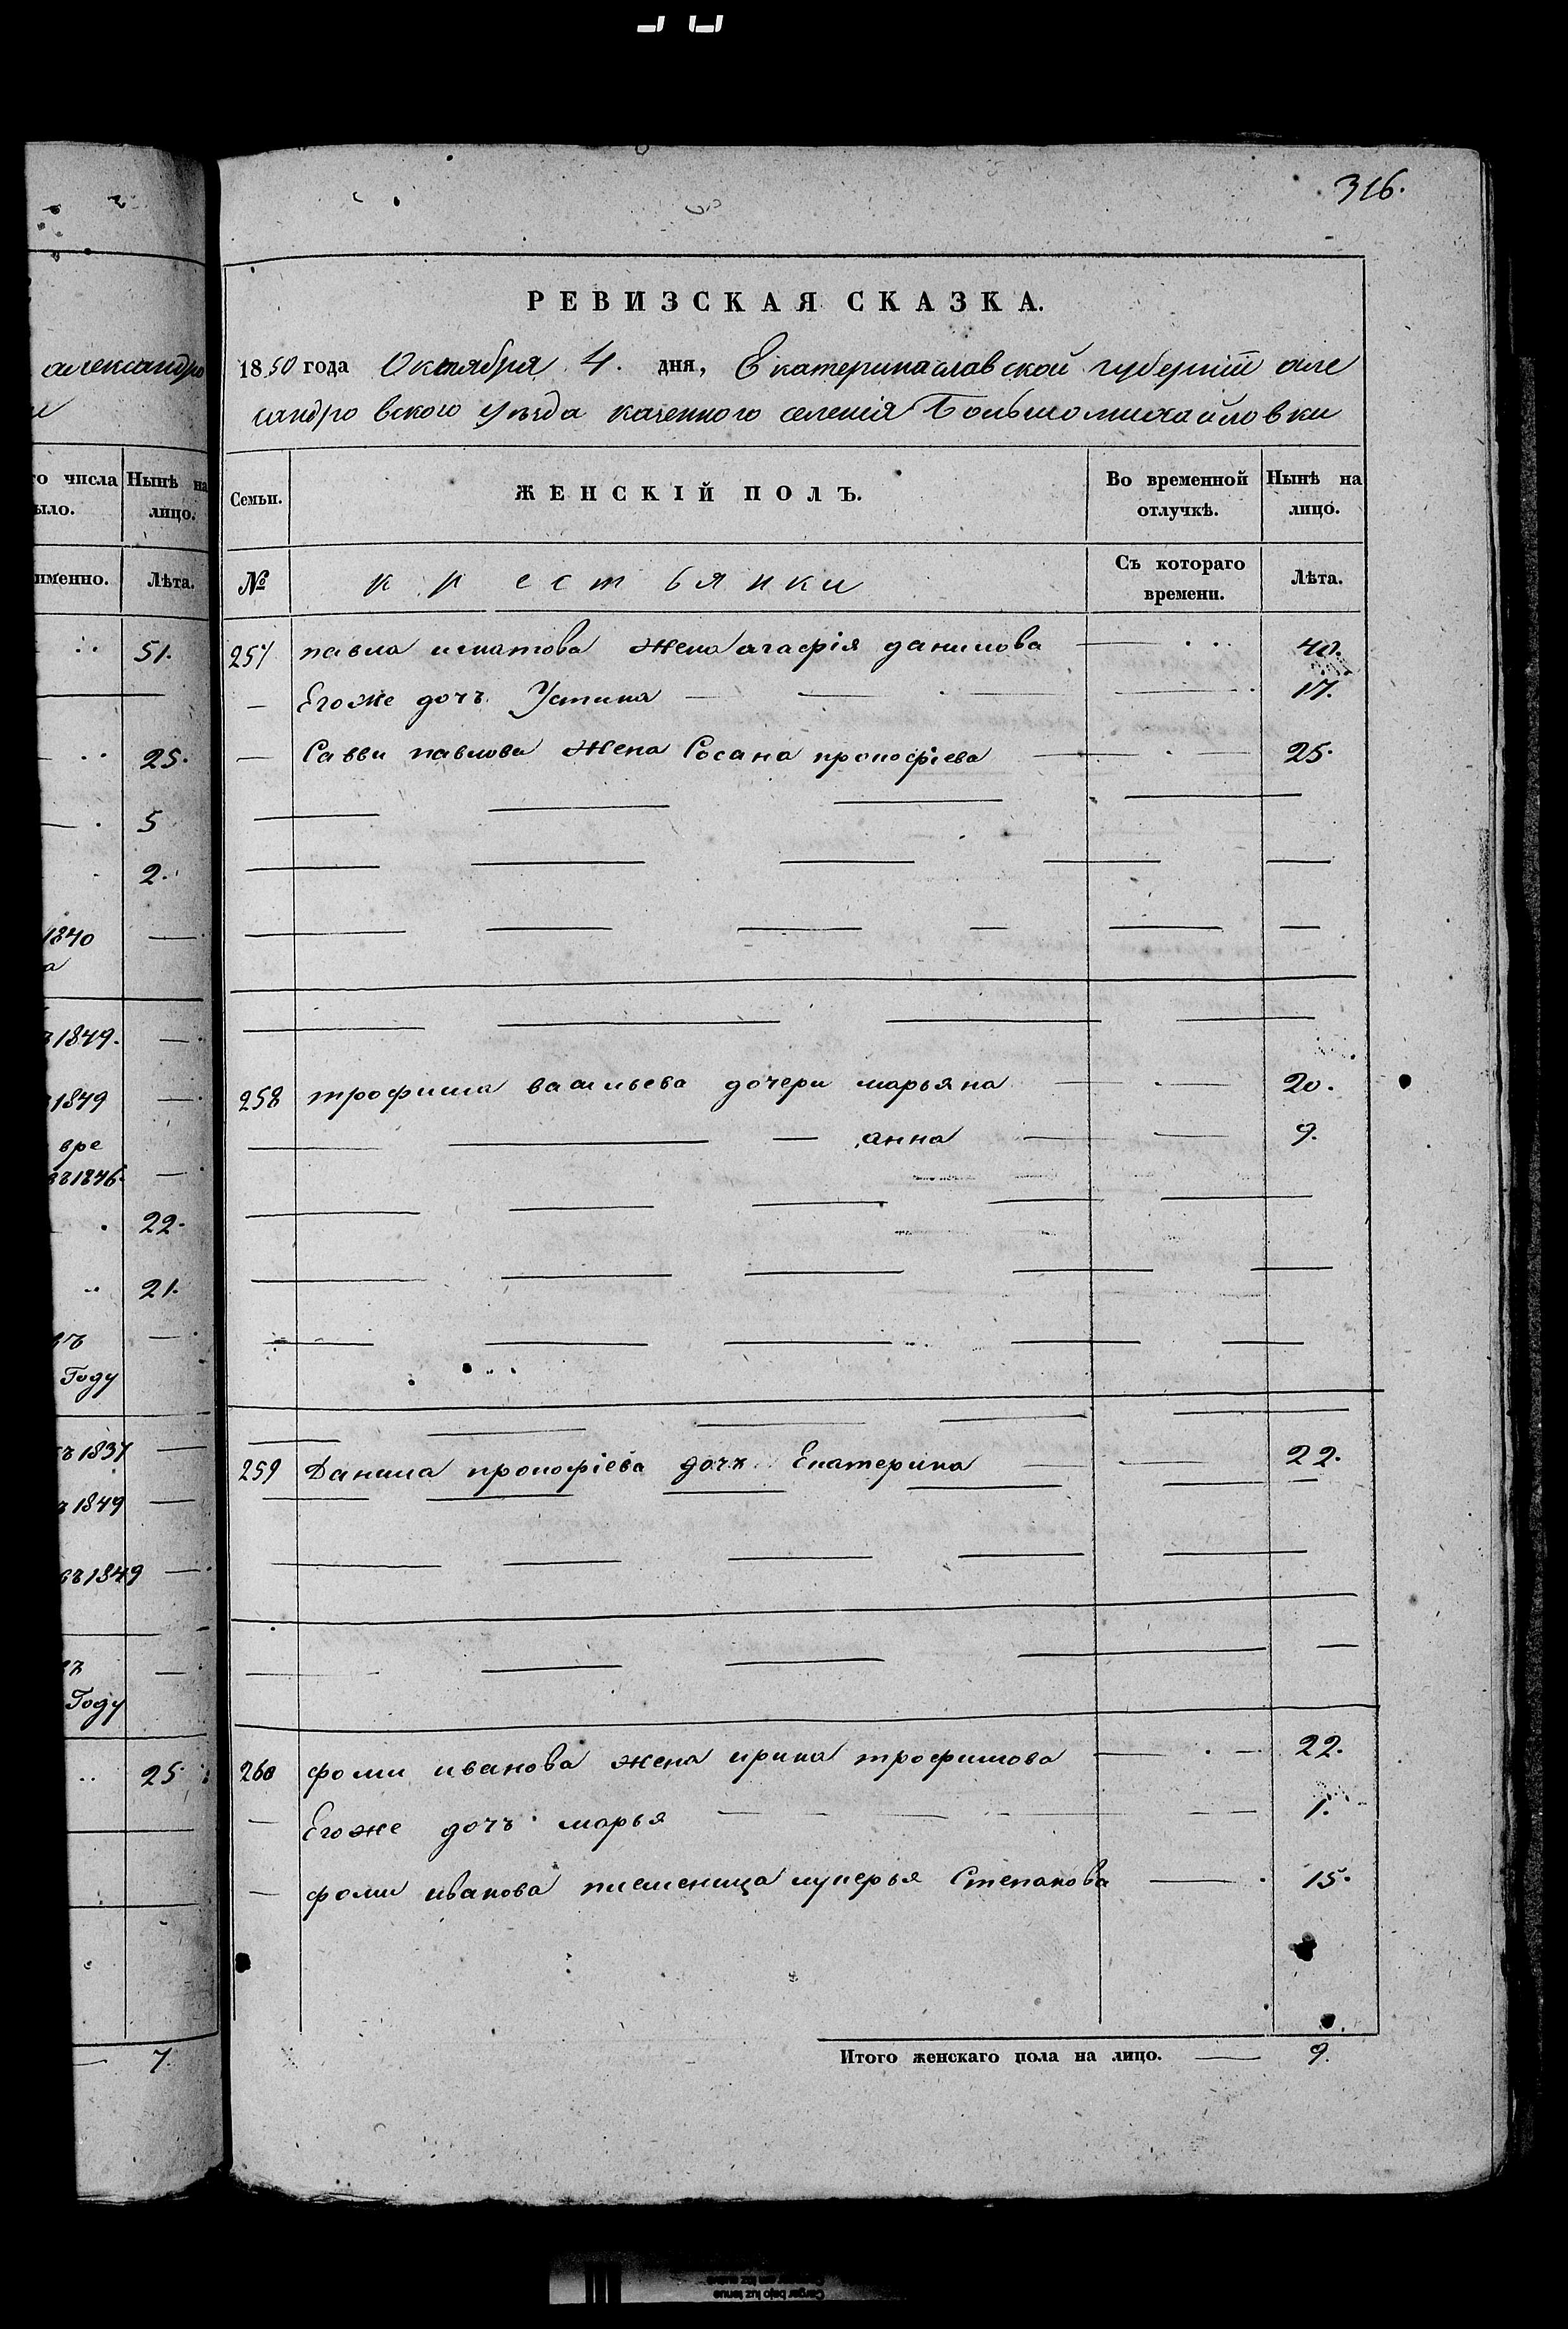 316.
александро
РЕВИЗСКАЯ СКАЗКА.
1850 года Октября 4. дня, Екатеринаславской губернiи але
сандровского уъзда казенного селенiя Большомихайловки
го числа
ыло.
Нынѣ на
лицо.
Семьи.
ЖЕНСКІЙ ПОЛЪ.
Во временной
отлучкѣ.
Нынѣ на
лицо.
именно.
Лѣта.
№
крестьянки
Съ котораго
времени.
Лѣта.
51.
257 павла игнатова жена агафiя данилова 40.
Егоже дочъ Устина 17.
25.
Савви павлова жена Сосана прокофiева 25.
5
2.
1840
1849.
1849
258 трофима васильева дочери марьяна 20.
вре
анна 9.
въ1846.
22.
21.
въ
Году
1837
259 Данила прокофiева дочъ Екатерина 22.
1849
въ1849
Году
25
260 фоми иванова жена ирина трофимова 22.
Егоже дочъ марья 1.
фоми иванова племеница лукерья Степанова 15.
7.
Итого женскаго пола на лицо. 9.